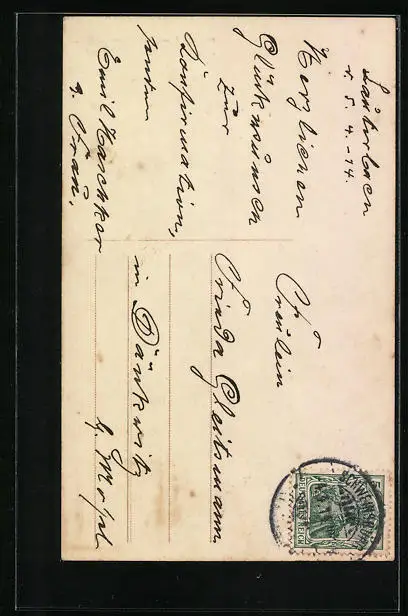 Lauterbach
d. 5. 4. -14.
Herzlichen
Glückwunsch
zur
Konfirmation,
senden
Emil Haschker
u. Frau.
Fräulein
Frida Gleitsmann
in Dänkritz
b. Mosel
DEUTSCHES REICH